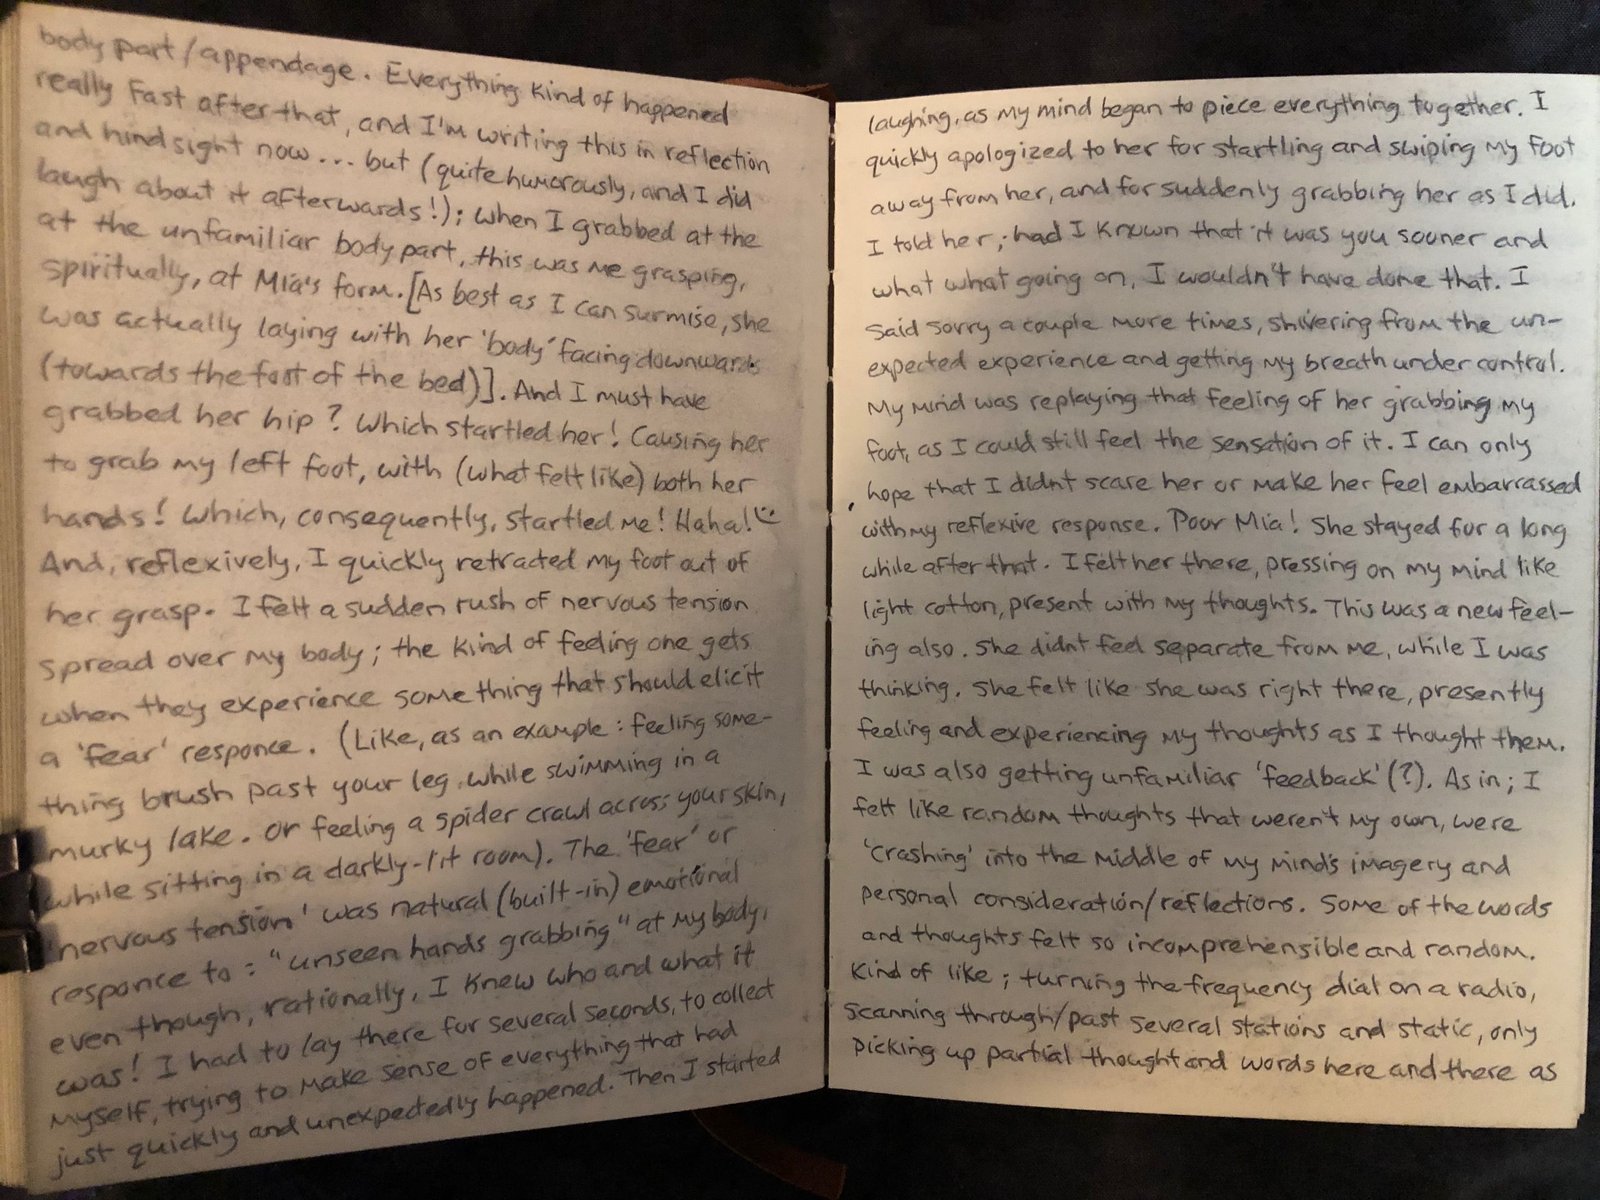 body part/appendage. Everything kind of happened
really fast after that, and I'm writing this in reflection
and hindsight now... but (quite humorously, and I did
laugh about it afterwards!); when I grabbed at the
at the unfamiliar body part, this was me grasping,
spiritually, at Mia's form. [As best as I can surmise, she
was actually laying with her 'body' facing downwards
(towards the foot of the bed)]. And I must have
grabbed her hip? Which startled her! Causing her
to grab my left foot, with (what felt like) both her
hands! Which, consequently, startled me! Haha!
And, reflexively, I quickly retracted my foot out of
her grasp. I felt a sudden rush of nervous tension
spread over my body; the kind of feeling one gets
when they experience something that should elicit
a 'fear' responce. (Like, as an example: feeling some-
thing brush past your leg while swimming in a
murky lake. Or feeling a spider crawl across your skin,
while sitting in a darkly-lit room). The 'fear' or
nervous tension' was natural (built-in) emotional
responce to: "unseen hands grabbing" at my body,
even though, rationally, I knew who and what it
was! I had to lay there for several seconds, to collect
myself, trying to make sense of everything that had
just quickly and unexpectedly happened. Then I started
laughing, as my mind began to piece everything together. I
quickly apologized to her for startling and swiping my foot
away from her, and for suddenly grabbing her as I did.
I told her; had I known that it was you sooner and
what what going on, I wouldn't have done that. I
said sorry a couple more times, shivering from the un-
expected experience and getting my breath under control.
My mind was replaying that feeling of her grabbing my
foot, as I could still feel the sensation of it. I can only
hope that I didnt scare her or make her feel embarrassed
with my reflexive response. Poor Mia! She stayed for a long
while after that. I felt her there, pressing on my mind like
light cotton, present with my thoughts. This was a new feel-
ing also. She didnt feel separate from me, while I was
thinking. She felt like she was right there, presently
feeling and experiencing my thoughts as I thought them.
I was also getting unfamiliar 'feedback' (?). As in; I
felt like random thoughts that weren't my own, were
'crashing' into the middle of my mind's imagery and
personal consideration/reflections. Some of the words
and thoughts felt so incomprehensible and random.
Kind of like; turning the frequency dial on a radio,
scanning through/past several stations and static, only
picking up partial thought and words here and there as